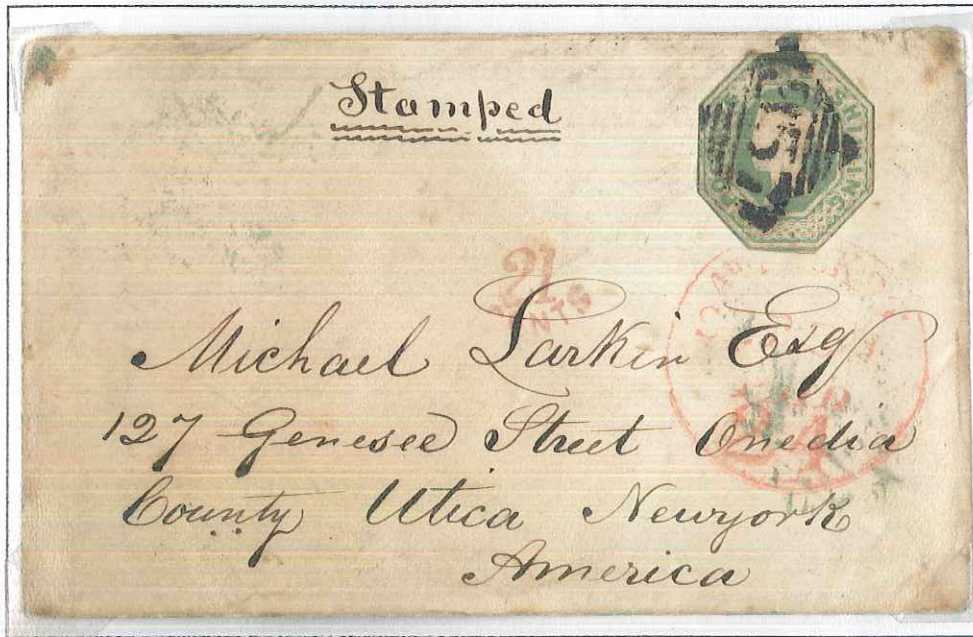 Stamped
SHILLING
21
Michael Larkin Esq
127 Genesee Street Onedia
County Utica Newyork
America
24